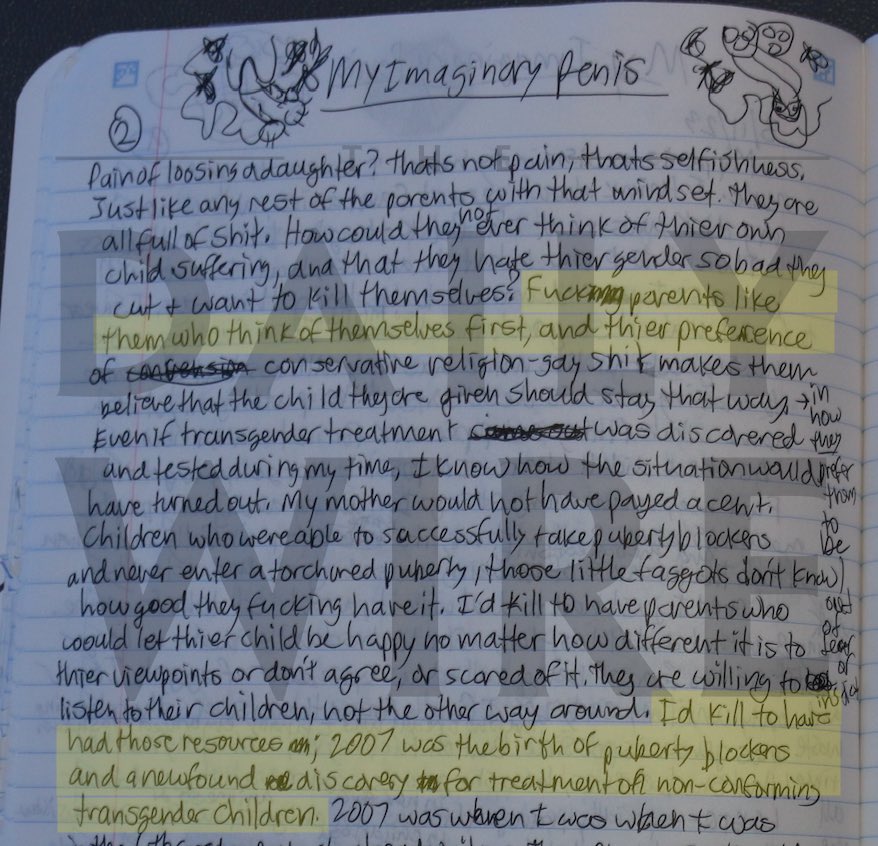 My Imaginary Penis
2
Pain of loosing a daughter? thats not pain, thats selfishness.
Just like any rest of the parents with that mindset. They are
all full of shit. How could they not ever think of thier own
child suffering, and that they hate thier gender so bad they
cut & want to kill themselves? Fucking parents like
them who think of themselves first, and thier preference
of conservative religion-gay shit makes them
believe that the child they are given should stay that way → in how they prefer them to be out of fear of
Even if transgender treatment was discovered
and tested during my time, I know how the situation would
have turned out. My mother would not have payed a cent.
Children who were able to saccessfully take puberty blockers
and never enter a torchured puberty, those little faggots don't know
how good they fucking have it. I'd kill to have parents who
would let thier child be happy no matter how different it is to
thier viewpoints or don't agree, or scared of it. They are willing to
listen to their children, not the other way around. I'd kill to have
had those resources; 2007 was the birth of puberty blockers
and a newfound discovery for treatment of non-conforming
transgender children. 2007 was when I was
THE
DAILY
WIRE